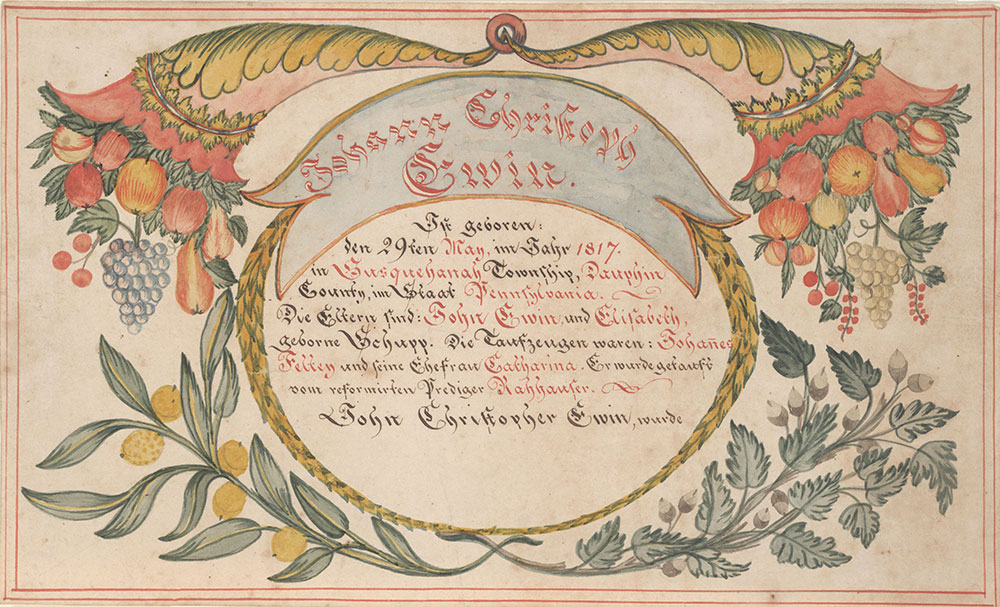 Johann Christoph
Ewin.
Ist geboren:
den 29ten May, im Jahr 1817.
in Susquehanah Township, Dauphin
County, im Staat Pennsylvania.
Die Eltern sind: John Ewin, und Elisabeth,
geborne Schupp. Die Taufzeugen waren: Johañes
Felley und seine Ehefrau Catharina. Er wurde getauft
vom reformirten Prediger Rahhauser.
John Christopher Ewin, wurde